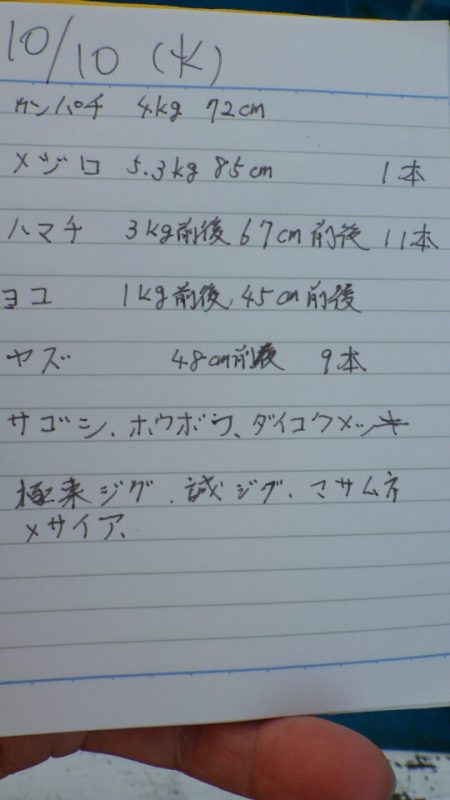 10/10 (水)
カンパチ 4kg 72cm
メジロ 5.3kg 85cm 1本
ハマチ 3kg前後 67cm前後 11本
ヨコ 1kg前後、45cm前後
ヤズ 48cm前後 9本
サゴシ、ホウボウ、ダイコクメッキ
極来ジグ、誠ジグ、マサムネ
メサイア、